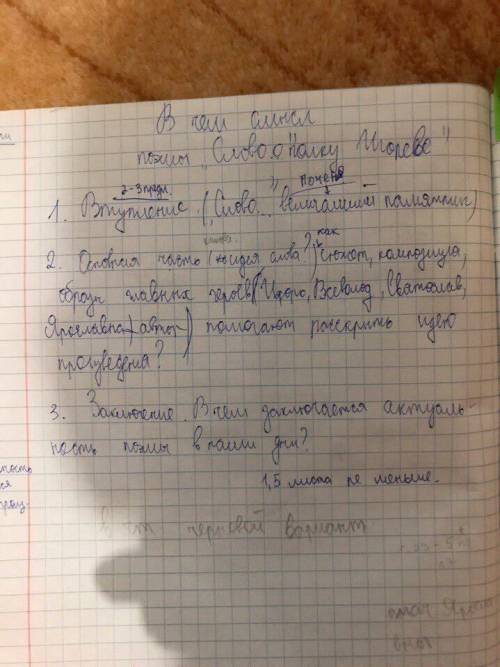 В чем смысл
поэмы „Слово о полку Игореве"
2-3 предл. почему
1. Вступление. („Слово..." величайший памятник)
какова как
2. Основная часть (идея слова? сюжет, композиция,
образы главных героев (Игоря, Всеволод, Святослав,
Ярославна, автор) помогают раскрыть идею
произведения?
3. Заключение. В чем заключается актуаль-
ность поэмы в наши дни?
1,5 листа не меньше.
черновой вариант
ность
ся